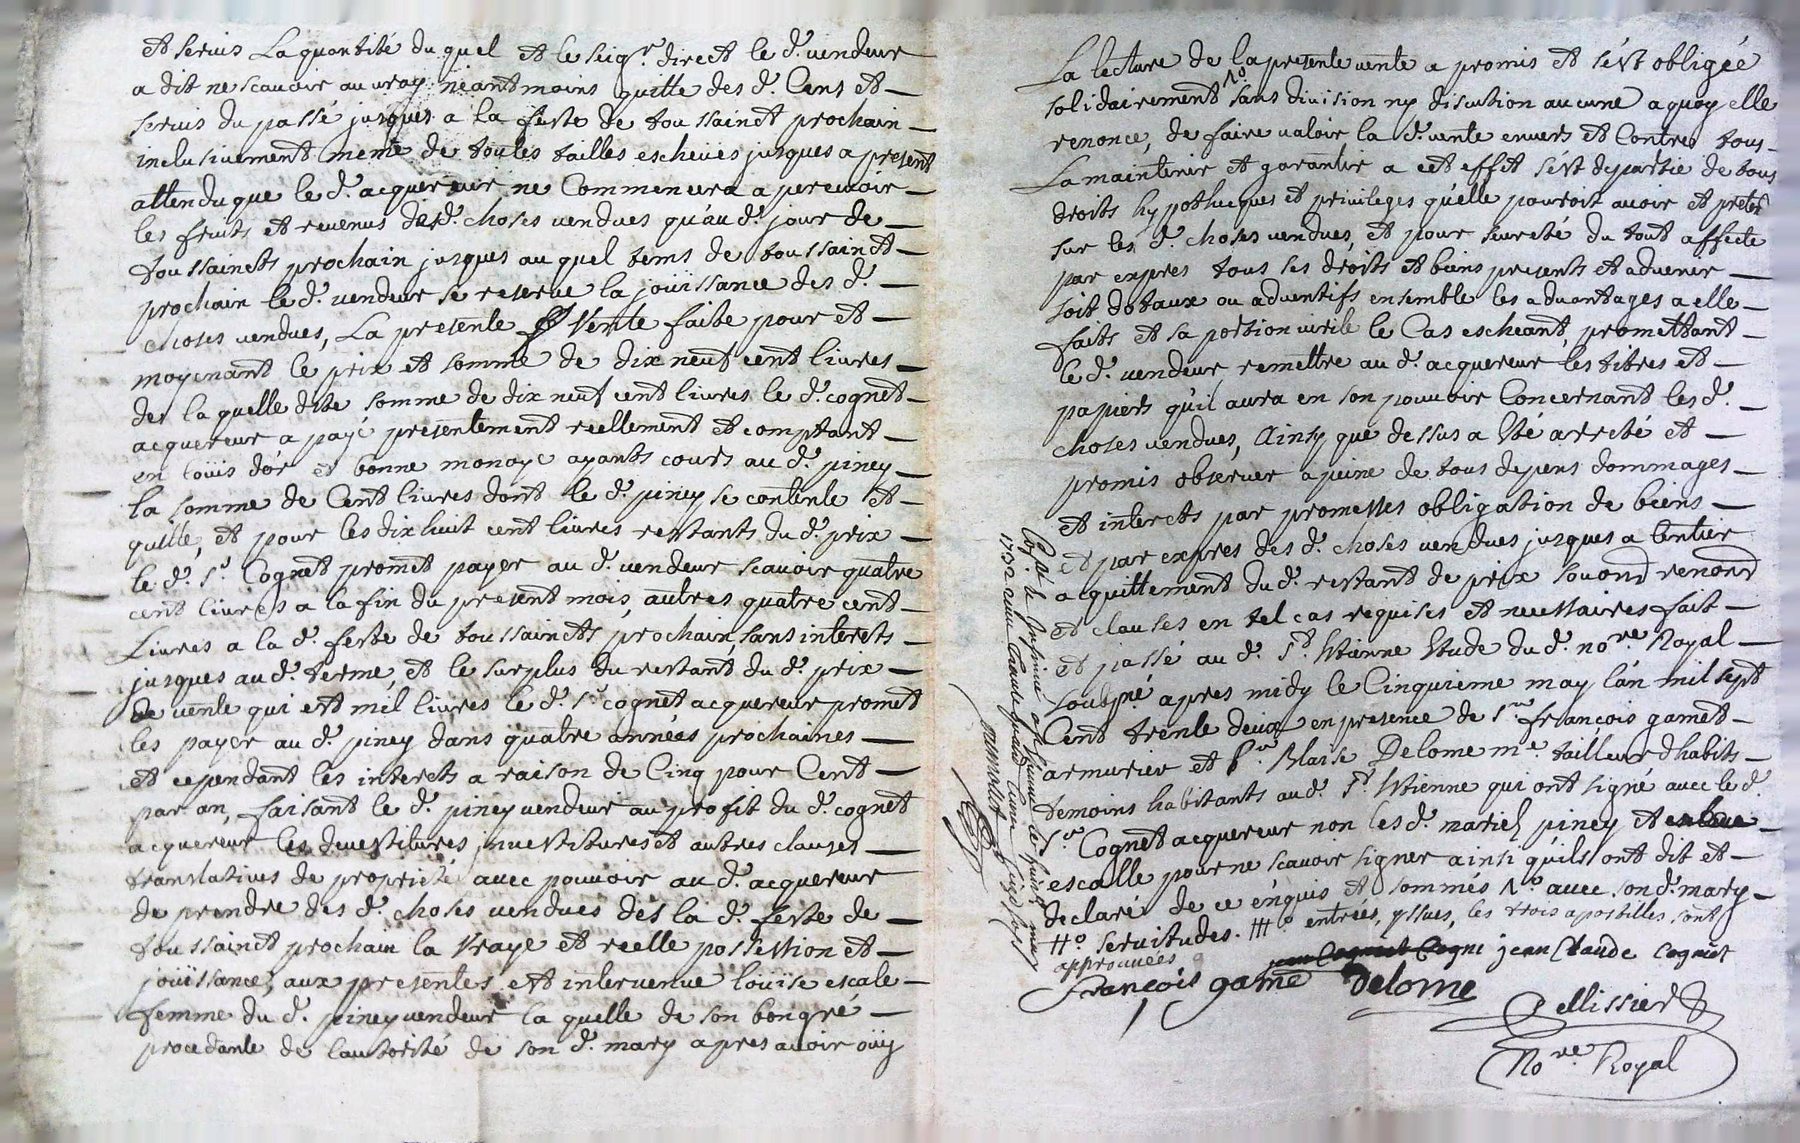 et servis La quantité du quel et le seigr. direct le d. vendeur
a dit ne scavoir au vray néantmoins quitte des d. Cens et
servis du passé jusques a la feste de toussainct prochain
inclusivement meme de toutes tailles escheües jusques a present
attendu que le d. acquereur ne Commencera a percevoir
les fruits et revenus desd. choses vendues qu'au d. jour de
toussaincts prochain jusques au quel tems de toussainct
prochain le d. vendeur se reserve la joüissance des d.
choses vendues, La presente vente faite pour et
moyenant le prix et somme de dix neuf cent livres
de la quelle dite somme de dix neuf cent livres le d. cognet
acquereur a payé presentement reellement et comptant
en loüis d'or et bonne monoye ayants cours au d. piney
la somme de Cent livres dont le d. piney se contente et
quitte, et pour les dix huit cent livres restants du d. prix
le d. sr. Cognet promet payer au d. vendeur scavoir quatre
cent livres a la fin du present mois, autres quatre cent
Livres a la d. feste de toussaincts prochain, sans interets
jusques au d. terme, et le surplus du restant du d. prix
de vente qui est mil livres le d. sr. cognet acquereur promet
les payer au d. piney dans quatre années prochaines
et cependant les interets a raison de Cinq pour Cent
par an, faisant le d. piney vendeur au profit du d. cognet
acquereur les devestitures investitures et autres clauses
translatives de proprieté avec pouvoir au d. acquereur
de prendre des d. choses vendues dès la d. feste de
toussainct prochain la vraye et reelle possession et
joüissance, aux presentes est intervenue loüise escale
femme du d. piney vendeur la quelle de son bon gré
procedante de l'autorité de son d. mary apres avoir oüy
La lecture de la presente vente a promis et s'est obligée
solidairement 1o. sans division ny discution aucune a quoy elle
renonce, de faire valoir la d. vente envers et Contre tous
La maintenir et garantir a cet effet s'est departie de tous
droits hypotheques et privileges qu'elle pouroit avoir et pretendre
sur les d. choses vendues, et pour seureté du tout affecte
par expres tous ses droits et biens presents et advenir
soit dotaux ou adventifs ensemble les advantages a elle
faits et sa portion virile le Cas escheant, promettant
le d. vendeur remettre au d. acquereur les titres et
papiers qu'il aura en son pouvoir Concernant les d.
choses vendues, Ainsy que dessus a été arreté et
promis observer a peine de tous depens dommages
et interets par promesses obligation de biens
et par expres des d. choses vendues jusques a Entier
acquittement du d. restant de prix
et clauses en tel cas requises et necessaires fait
et passé au d. St. Etienne Etude du d. nore. Royal
soubné apres midy le Cinquieme may l'an mil sept
Cent trente deux en presence de sr. françois gamet
armurier et sr. Blaise Delome me. tailleur d'habits
temoins habitants au d. St. Etienne qui ont signé avec le d.
sr. Cognet acquereur non les d. mariés piney et
escalle pour ne scavoir signer ainsi qu'ils ont dit et
declaré de ce enquis et sommés 1o. avec son d. mary
IIo. servitudes. IIIo. entrées, yssues, les trois apostilles sont
approuvées
jean Claude cognet
françois game Delome
Pellissier
Nore. Royal